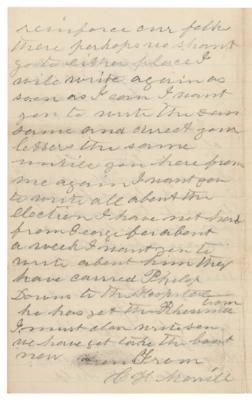 reinforce our folk
there perhaps we shant
go to either place I
will write again as
soon as I can I want
you to write the sun
same and direct your
letters the same
untile you here from
me again I want you
to write all about the
Election I have not herd
from George for about
a week I want you to
write about him they
have carried Philop
Down to the Hospital
he has got the Rheuma
I must close
we have got take the boat
now From
C H Merrill